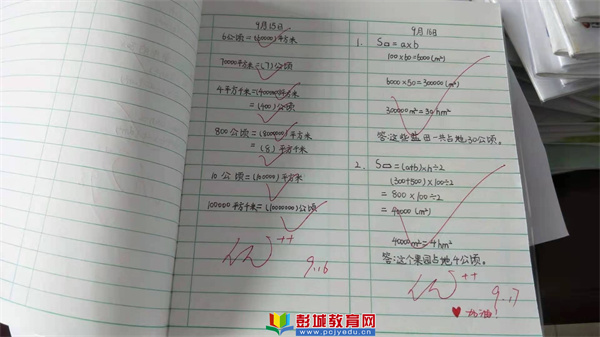 9月15日
6公顷=(60000)平方米
70000平方米=(7)公顷
4平方千米=(4000000)平方米
=(400)公顷
800公顷=(8000000)平方米
=(8)平方千米
10公顷=(100000)平方米
100000平方千米=(10000000)公顷
优++
9.16
9月16日
1. S▱=a×b
100×60=6000(m²)
6000×50=300000(m²)
300000m²=30hm²
答:这些盐田一共占地30公顷。
2. S=(a+b)×h÷2
(300+500)×100÷2
=800×100÷2
=40000(m²)
40000m²=4hm²
答:这个果园占地4公顷。
优++
9.17
♥加油!
彭城教育网
www.pcjyedu.com